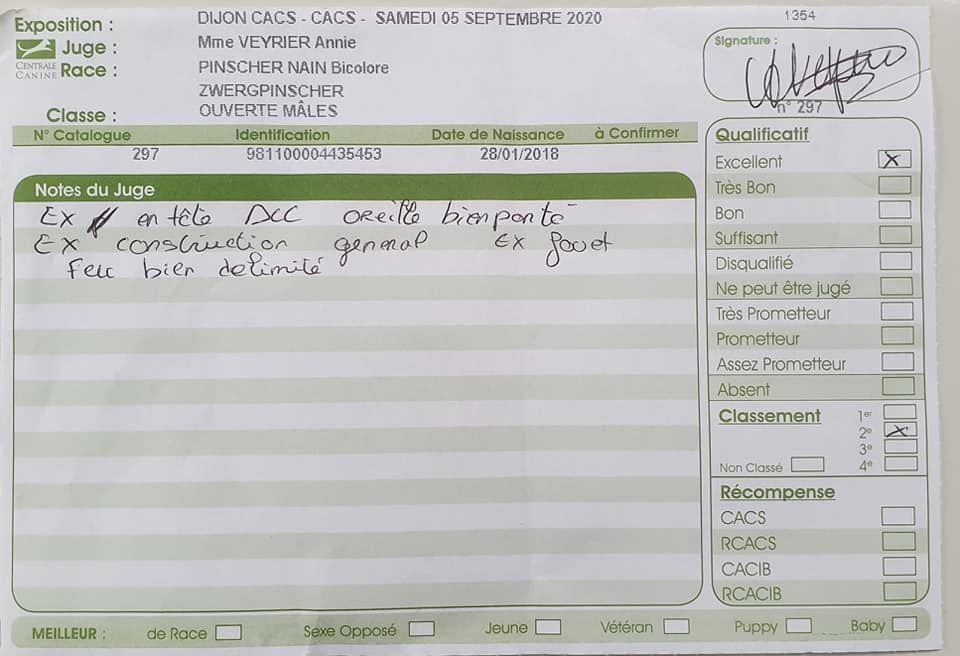 Exposition : DIJON CACS - CACS - SAMEDI 05 SEPTEMBRE 2020
1354
CENTRALE CANINE
Juge : Mme VEYRIER Annie
Race : PINSCHER NAIN Bicolore
ZWERGPINSCHER
Classe : OUVERTE MÂLES
Signature :
n° 297
N° Catalogue Identification Date de Naissance à Confirmer
297 981100004435453 28/01/2018
Notes du Juge
EX en tête DCC oreille bien porté
EX construction general EX fouet
Feu bien delimité
Qualificatif
Excellent X
Très Bon
Bon
Suffisant
Disqualifié
Ne peut être jugé
Très Prometteur
Prometteur
Assez Prometteur
Absent
Classement 1er
2e X
3e
Non Classé 4e
Récompense
CACS
RCACS
CACIB
RCACIB
MEILLEUR : de Race Sexe Opposé Jeune Vétéran Puppy Baby